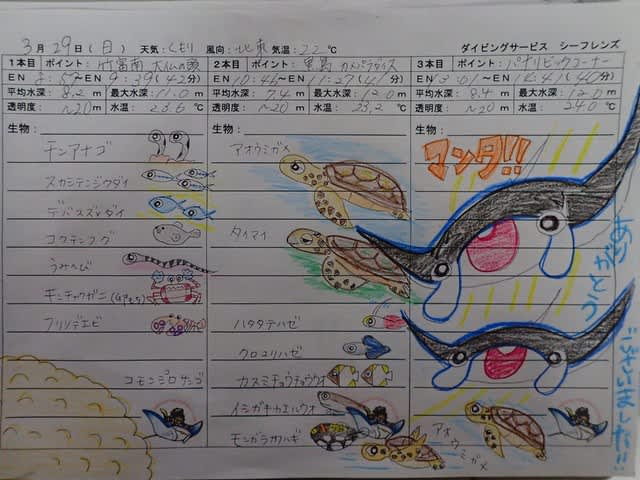 3月29日(日) 天気:くもり 風向:北東 気温:22℃
ダイビングサービス シーフレンズ
1本目 ポイント:竹富南 大仏の頭
EN 8:57～EN 9:39(42分)
平均水深:8.2m 最大水深:11.0m
透明度:～20m 水温:23.6℃
生物:
チンアナゴ
スカシテンジクダイ
デバスズメダイ
コクテンフグ
うみへび
キンチャクガニ
フリソデエビ
コモンシコロサンゴ
2本目 ポイント:黒島 カメパラダイス
EN 10:46～EN 11:27(41分)
平均水深:7.4m 最大水深:12.0m
透明度:～20m 水温:23.2℃
生物:
アオウミガメ
タイマイ
ハタタテハゼ
クロユリハゼ
カスミチョウチョウウオ
イシガキカエルウオ
モンガラカワハギ
アオウミガメ
3本目 ポイント:パナリビックコーナー
平均水深:8.4m 最大水深:12.0m
透明度:～20m 水温:24.0℃
生物:
マンタ!!
ありがとう
ございました